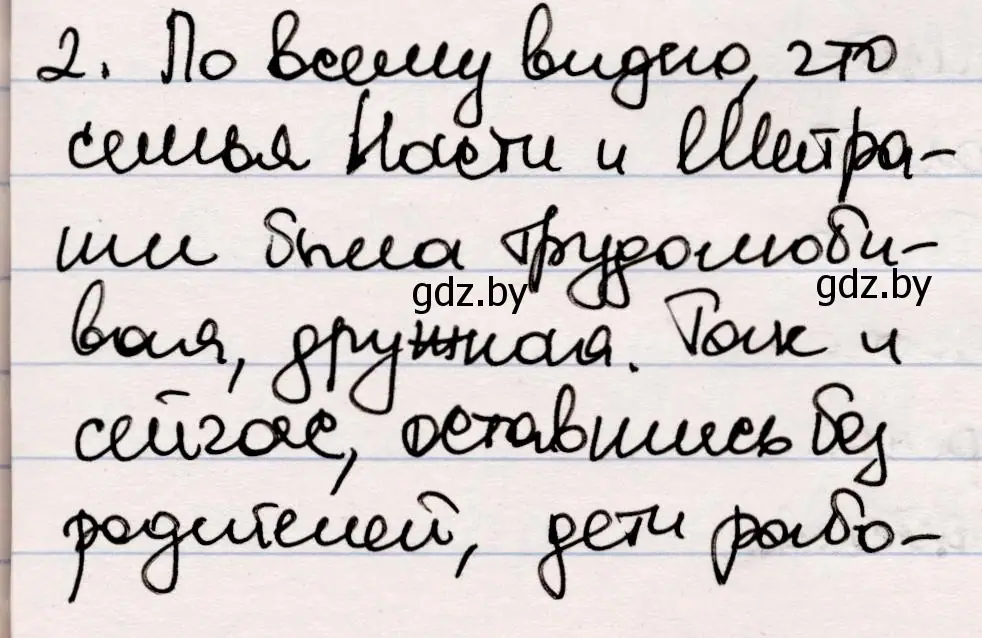 2. По всему видно, что
семья Насти и Митра-
ши была трудолюби-
вая, дружная. Так и
gdz.by
gdz.by
сейчас, оставшись без
родителей, дети рабо-